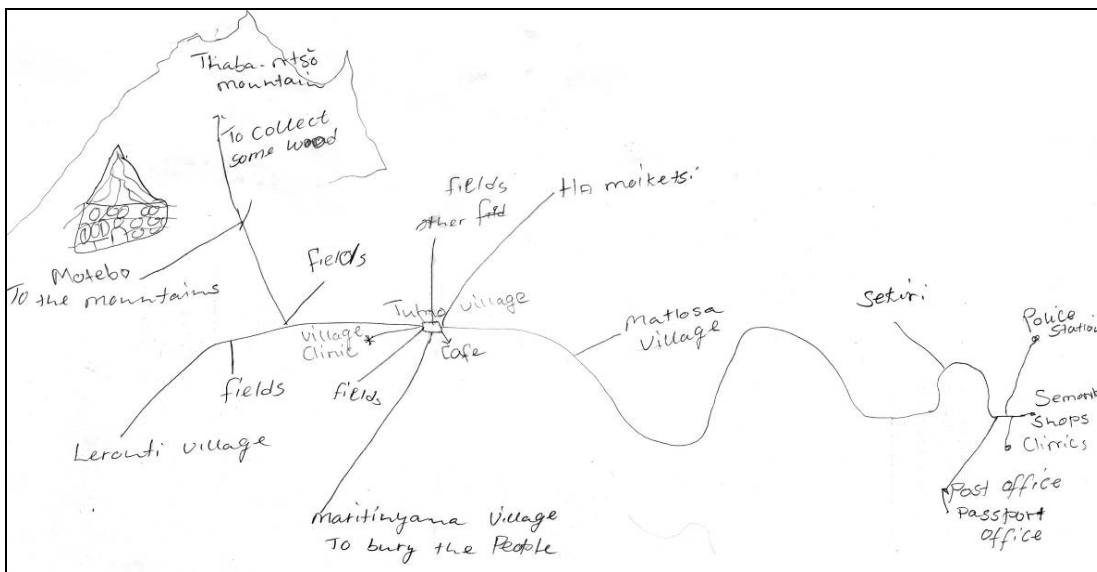 Thaba-ntšo
mountain
To collect
some wood
Motebo
To the mountains
fields
fields
other
Ha moiketsi
village
village
Clinic
Cafe
fields
fields
Leronti village
maritinyana village
To bury the People
Matlosa
village
Sekiri
Police
Station
Shops
Clinics
Post office
Passport
office